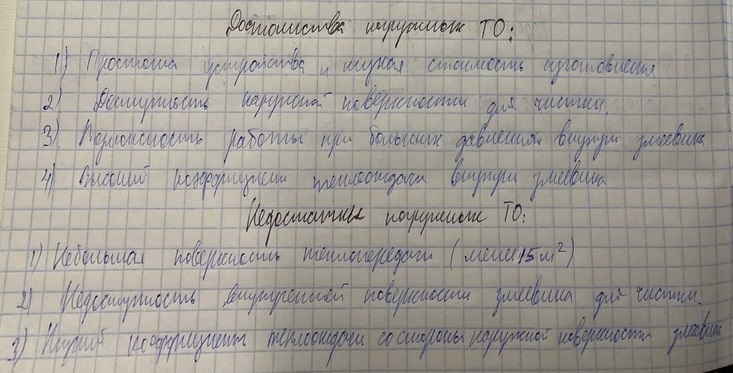 Достоинства погружных ТО:
1) Простота устройства и низкая стоимость изготовления
2) Доступность наружной поверхности для чистки.
3) Возможность работы при больших давлениях внутри змеевика
4) Высокий коэффициент теплоотдачи внутри змеевика
Недостатки погружных ТО:
1) Небольшая поверхность теплопередачи (менее 15 м²)
2) Недоступность внутренней поверхности змеевика для чистки.
3) Низкий коэффициент теплоотдачи со стороны наружной поверхности змеевика